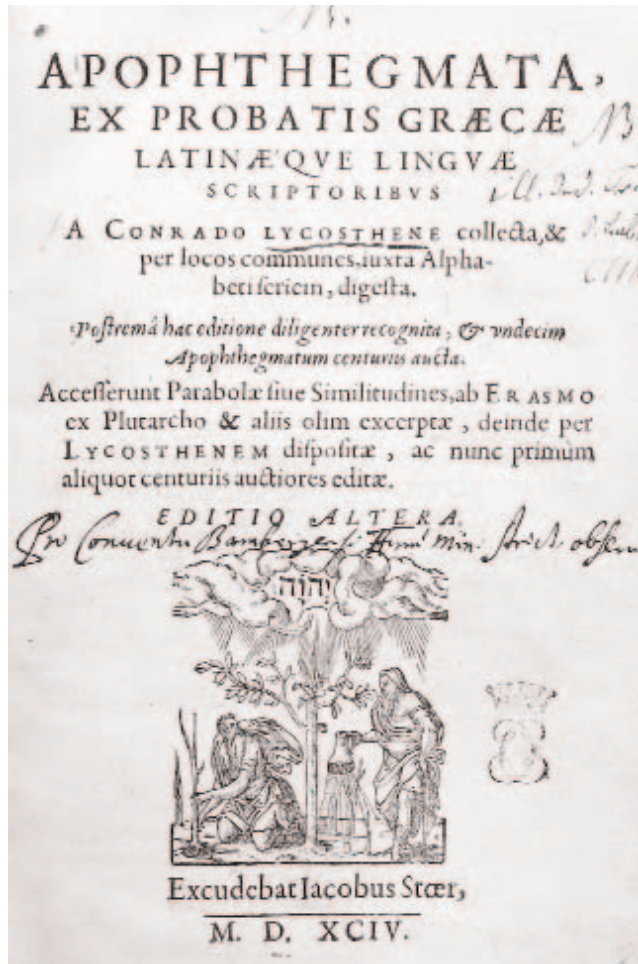 APOPHTHEGMATA,
EX PROBATIS GRÆCÆ
LATINÆQVE LINGVÆ
SCRIPTORIBVS
A CONRADO LYCOSTHENE collecta, &
per locos communes, iuxta Alpha-
beti seriem, digesta.
Postremâ hac editione diligenter recognita, & vndecim
Apophthegmatum centuriis aucta.
Accesserunt Parabolæ siue Similitudines, ab ERASMO
ex Plutarcho & aliis olim excerptæ, deinde per
LYCOSTHENEM dispositæ, ac nunc primùm
aliquot centuriis auctiores editæ.
EDITIO ALTERA.
Pro Conventu Min. strict. obser
יהוה
Excudebat Iacobus Stœr,
M. D. XCIV.